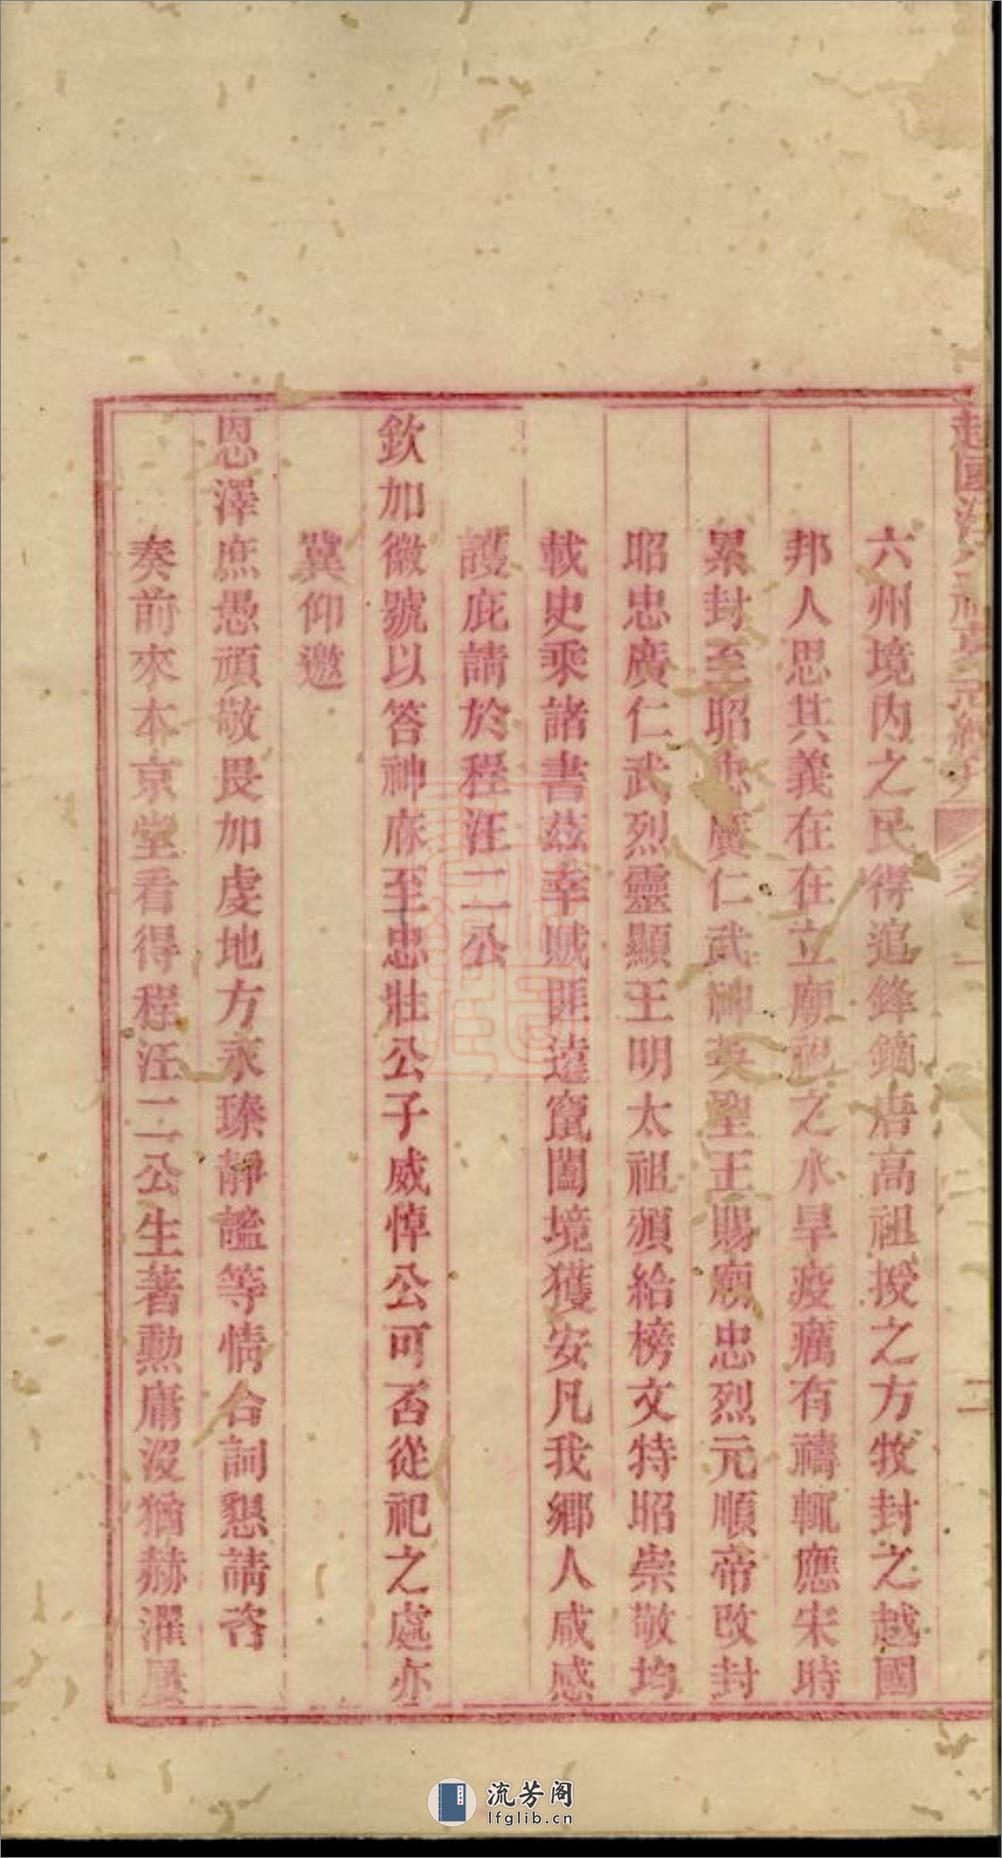 六州境內之民得追鋒鏑唐高祖授之方牧封之越國
邦人思其義在在立廟祀之水旱疫癘有禱輒應宋時
累封至昭忠廣仁武神英聖王賜廟忠烈元順帝改封
昭忠廣仁武烈靈顯王明太祖頒給榜文特昭崇敬均
載史乘諸書茲幸賊匪遠竄闔境獲安凡我鄉人咸感
護庇請於程汪二公
欽加徽號以答神庥至忠壯公子威悼公可否從祀之處亦
冀仰邀
恩澤庶愚頑敬畏加虔地方永臻靜謐等情合詞懇請咨
奏前來本京堂看得程汪二公生著勳庸沒猶赫濯屢
流芳阁
lfglib.cn